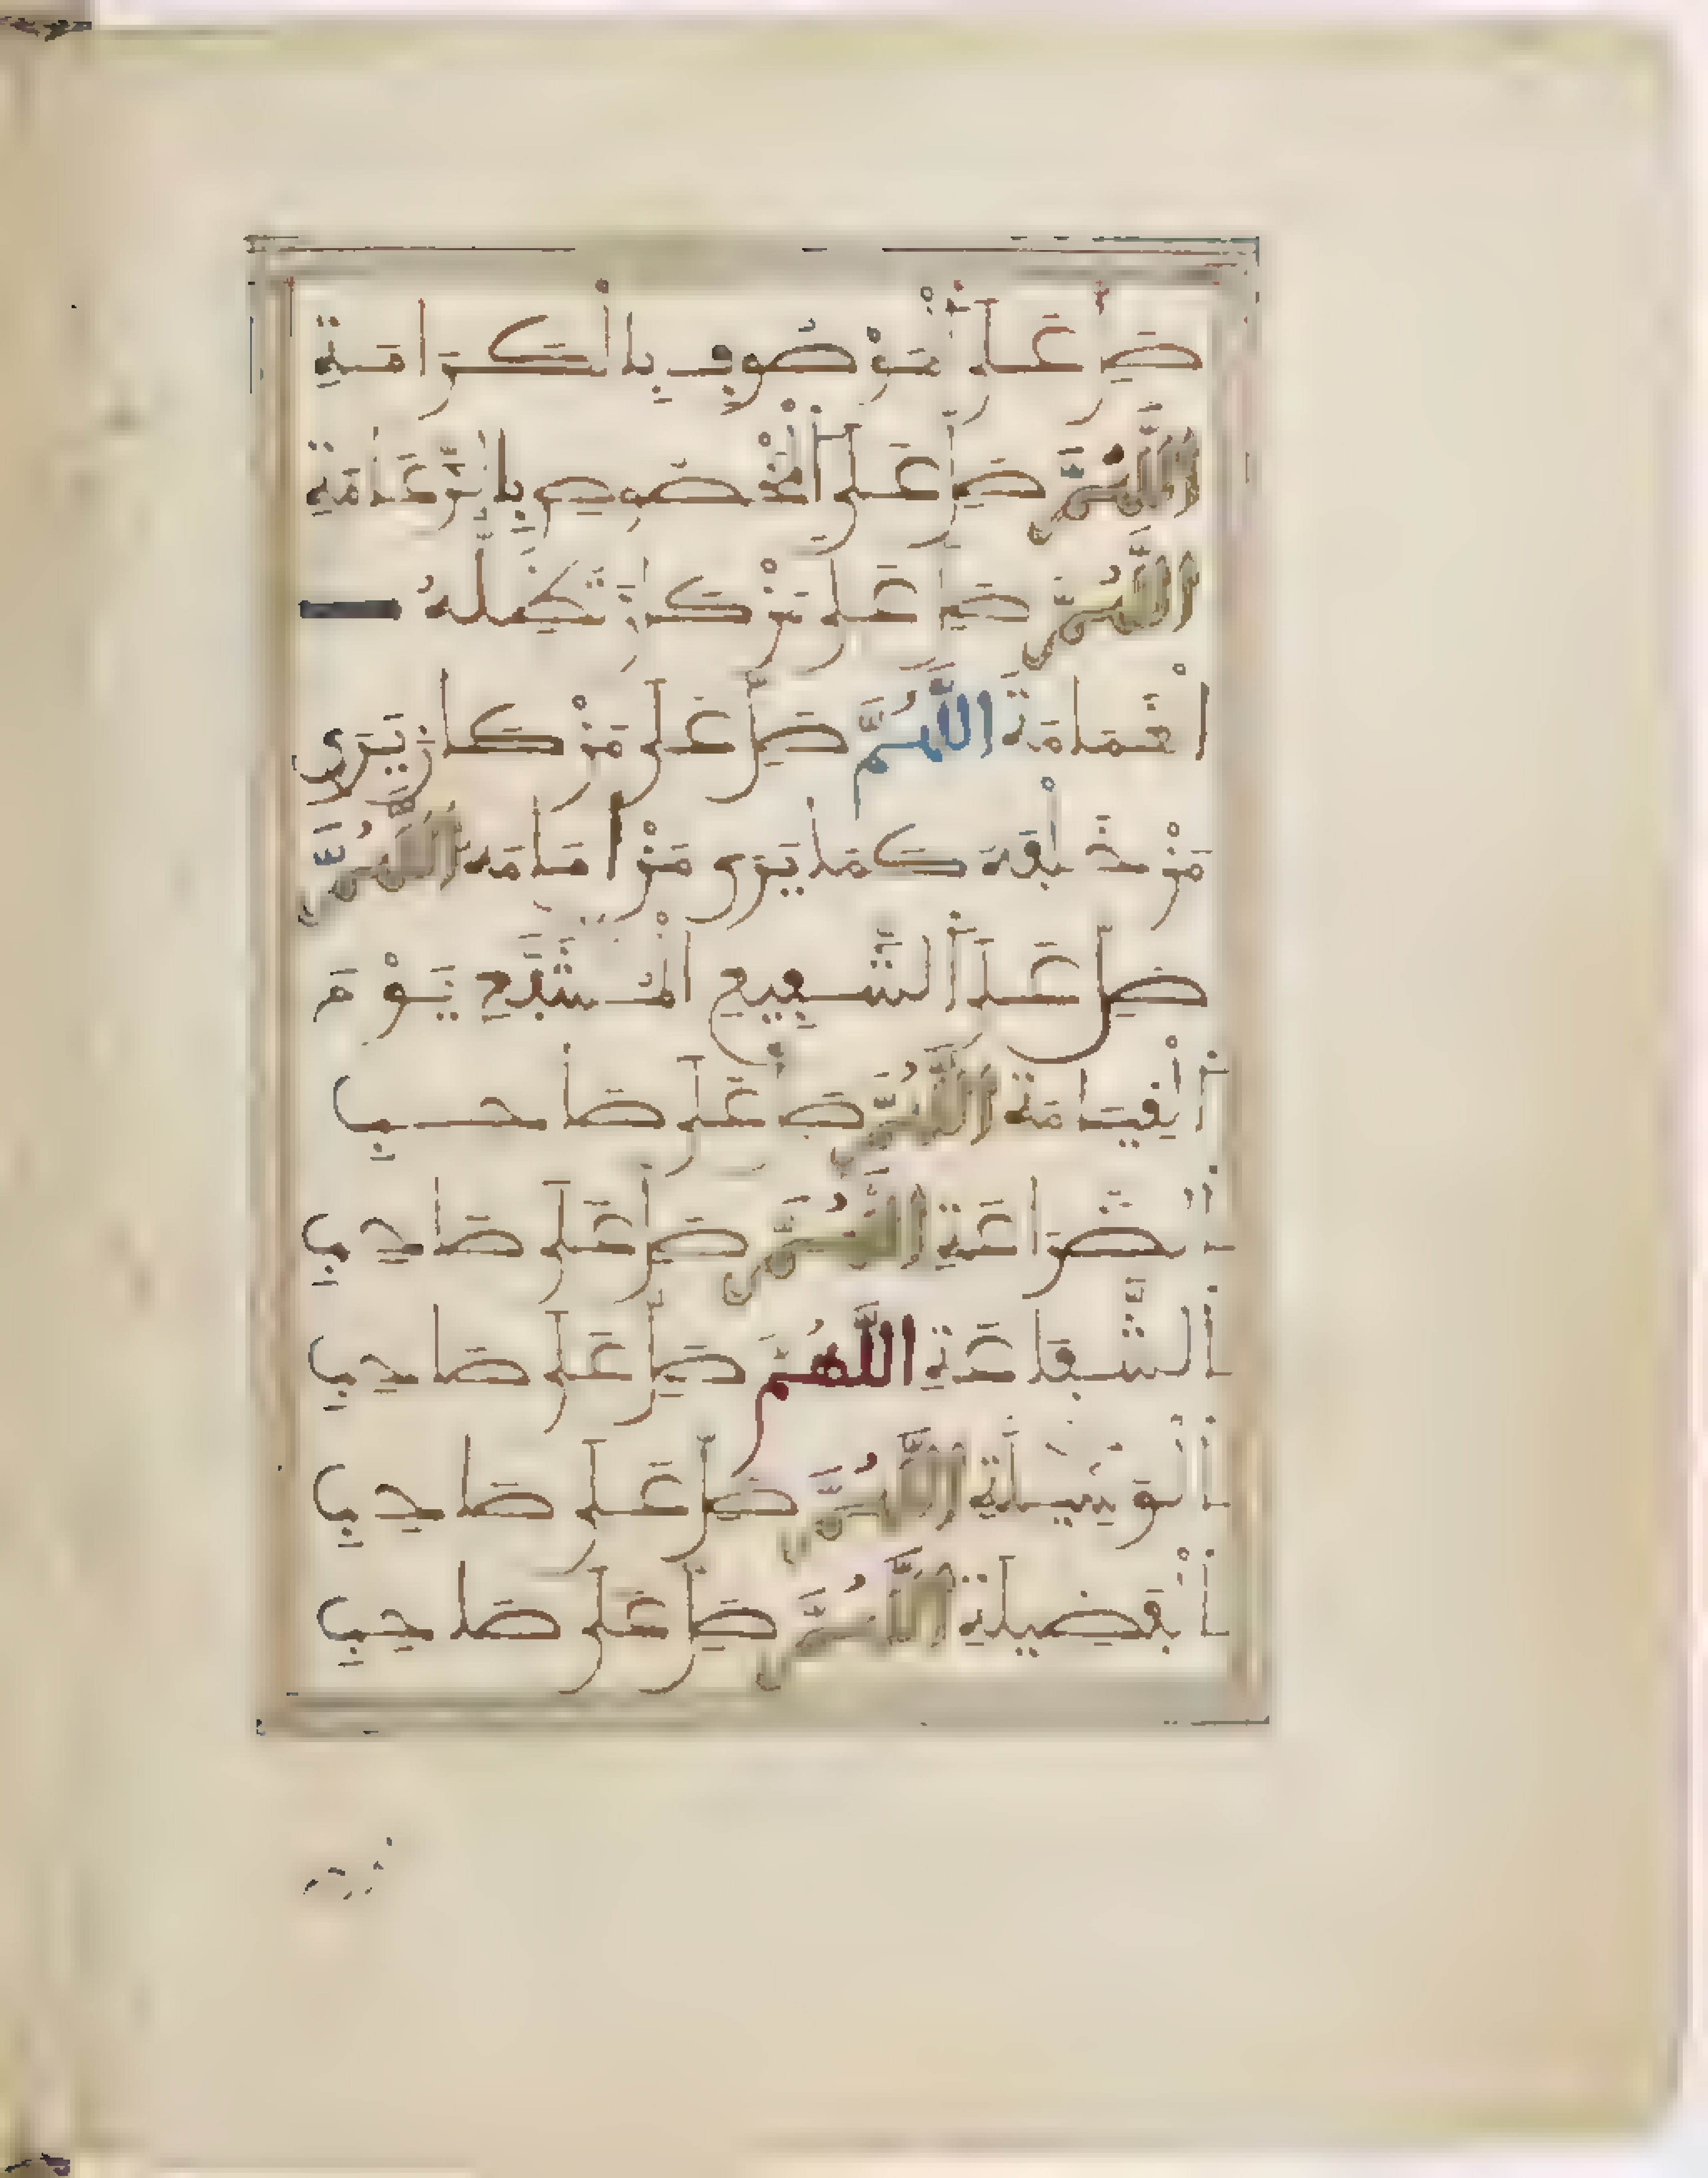 صَلِّ عَلَى الْمَوْصُوفِ بِالْكَرَامَةِ
اللَّهُمَّ صَلِّ عَلَى الْمَخْصُوصِ بِالزَّعَامَةِ
اللَّهُمَّ صَلِّ عَلَى مَنْ كَانَ تُظِلُّهُ
الْغَمَامَةُ اللَّهُمَّ صَلِّ عَلَى مَنْ كَانَ يَرَى
مَنْ خَلْفَهُ كَمَا يَرَى مَنْ أَمَامَهُ اللَّهُمَّ
صَلِّ عَلَى الشَّفِيعِ الْمُشَفَّعِ يَوْمَ
الْقِيَامَةِ اللَّهُمَّ صَلِّ عَلَى صَاحِبِ
الضَّرَاعَةِ اللَّهُمَّ صَلِّ عَلَى صَاحِبِ
الشَّفَاعَةِ اللَّهُمَّ صَلِّ عَلَى صَاحِبِ
الْوَسِيلَةِ اللَّهُمَّ صَلِّ عَلَى صَاحِبِ
الْفَضِيلَةِ اللَّهُمَّ صَلِّ عَلَى صَاحِبِ